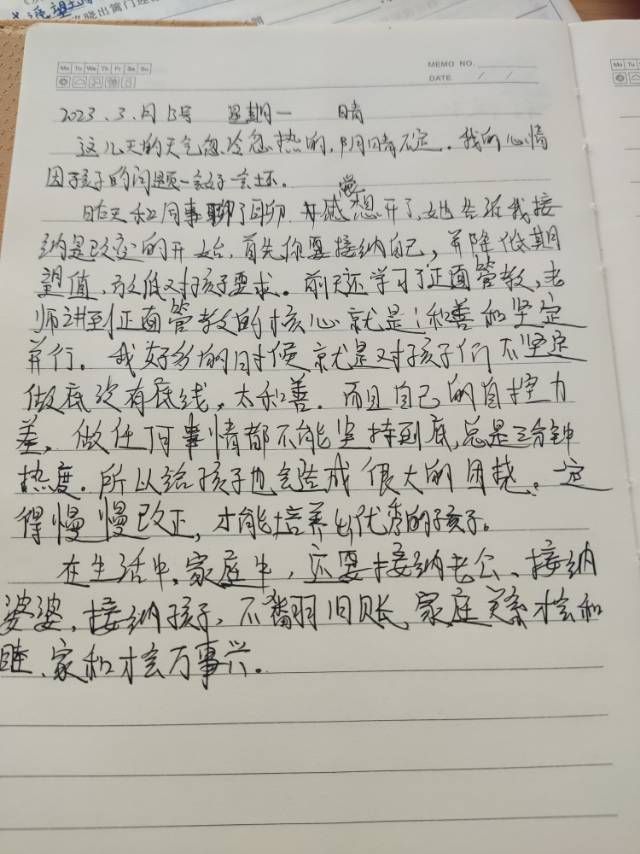 Mo Tu We Th Fr Sa Su
MEMO NO.
DATE / /
2023.3.月13号 星期一 晴
这几天的天气忽冷忽热的,阴晴不定。我的心情
因孩子的问题一会好一会坏。
昨天和同事聊了聊,感觉想开了,她告诉我接
纳是改变的开始,首先你要接纳自己,并降低期
望值,放低对孩子要求。前天还学习了正面管教,老
师讲到正面管教的核心就是:和善和坚定
并行。我好多的时候,就是对孩子们不坚定
做底没有底线,太和善。而且自己的自控力
差,做任何事情都不能坚持到底,总是三分钟
热度。所以给孩子也会造成很大的困扰。一定
得慢慢改正,才能培养出优秀的孩子。
在生活中,家庭中,还要接纳老公、接纳
婆婆,接纳孩子,不翻旧账,家庭关系才会和
睦、家和才会万事兴。